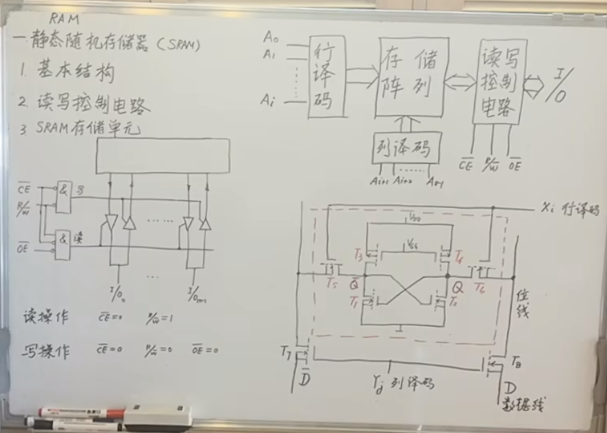 RAM
一 静态随机存储器 (SRAM)
1 基本结构
2 读写控制电路
3 SRAM 存储单元
A₀
A₁
Ai
行译码
存储阵列
读写控制电路
I/O
列译码
Ai+1 Ai+2
C̅E̅ R/W̅ O̅E̅
C̅E̅
R/W̅
O̅E̅
& 写
& 读
I/O₀
I/Om
读操作 C̅E̅=0 R/W̅=1
写操作 C̅E̅=0 R/W̅=0 O̅E̅=0
Xi 行译码
T₃
T₄
T₅
Q̅
Q
T₆
T₁
T₂
位线
T₇
T₈
D̅
Yj 列译码
D
数据线